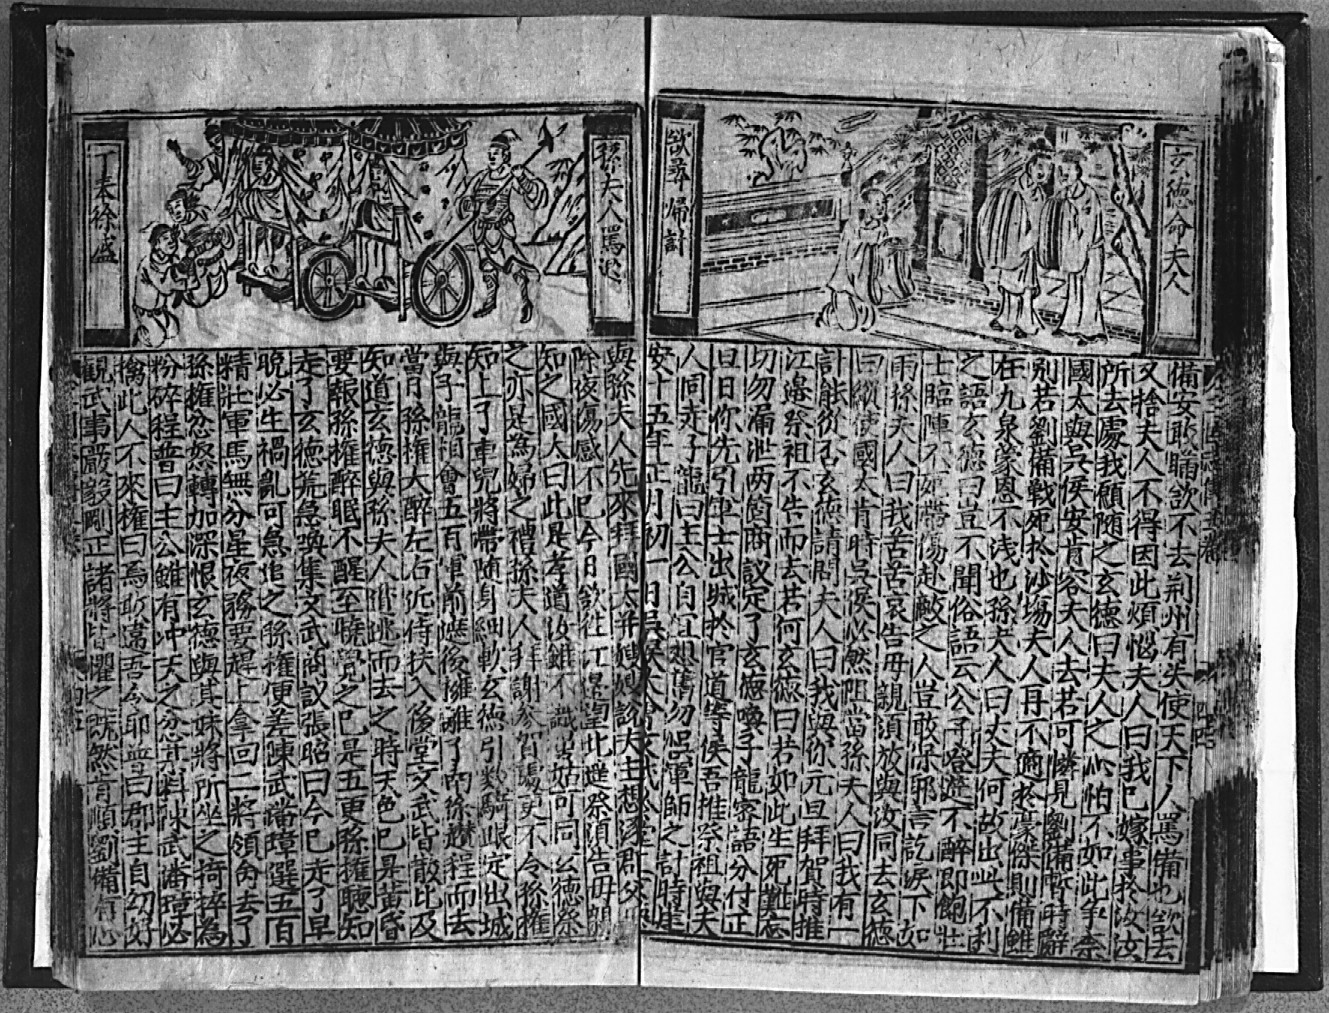 玄德命夫人
欲尋歸計
備安敢瞞欲不去荊州有失使天下人罵備也欲去
又捨夫人不得因此煩惱夫人曰我已嫁事於汝汝
所去處我願隨之玄德曰夫人之心怕不如此爭奈
國太與吳侯安肯容夫人去若可憐見劉備暫時辭
別若劉備戰死於沙場夫人再不適於豪傑則備雖
在九泉蒙恩不浅也孫夫人曰丈夫何故出此不利
之語玄德曰豈不聞俗語云公子登筵不醉即飽壯
士臨陣不死帶傷赴敵之人豈敢保耶言訖淚下如
雨孫夫人曰我苦苦哀告母親須放與汝同去玄德
曰縱使國太肯時吳侯必然阻當孫夫人曰我有一
計能從否玄德請問夫人曰我與你元旦拜賀時推
江邊祭祖不告而去若何玄德曰若如此生死難忘
切勿漏泄两箇商議定了玄德喚子龍密語分付正
旦日你先引軍士出城於官道等侯吾推祭祖與夫
人同去子龍曰主公自思想舊勿忘軍師之計時建
安十五年正月初一日吳侯大會文武於堂上玄德
孫夫人罵退
丁奉徐盛
與孫夫人先來拜國太并嫂嫂說夫主想念郡父母
除夜傷感不已今日欲往江邊望北遙祭須告母親
知之國太曰此是孝道汝雖不識舅姑可同玄德祭
之亦是為婦之禮孫夫人拜謝參賀場更不令孫權
知上了車兒將帶随身細軟玄德引数騎跟定出城
與子龍相會五百軍前遮後擁離了南徐趲程而去
當日孫權大醉左右近侍扶入後堂文武皆散比及
知道玄德與孫夫人逃去之時天色已是黃昏
要報孫權醉眠不醒至曉覺之已是五更孫權聽知
走了玄德荒急喚集文武商議張昭曰今已走了早
晚必生禍亂可急追之孫權便差陳武潘璋選五百
精壯軍馬無分星夜務要趕上拿回二將領命去了
孫權忿怒轉加深恨玄德與其妹將所坐之椅摔為
粉碎程普曰主公雖有冲天之忿某料陳武潘璋必
擒此人不來權曰焉敢違吾命耶普曰郡主自幼好
觀武事嚴毅剛正諸將皆懼之既然肯順劉備有心